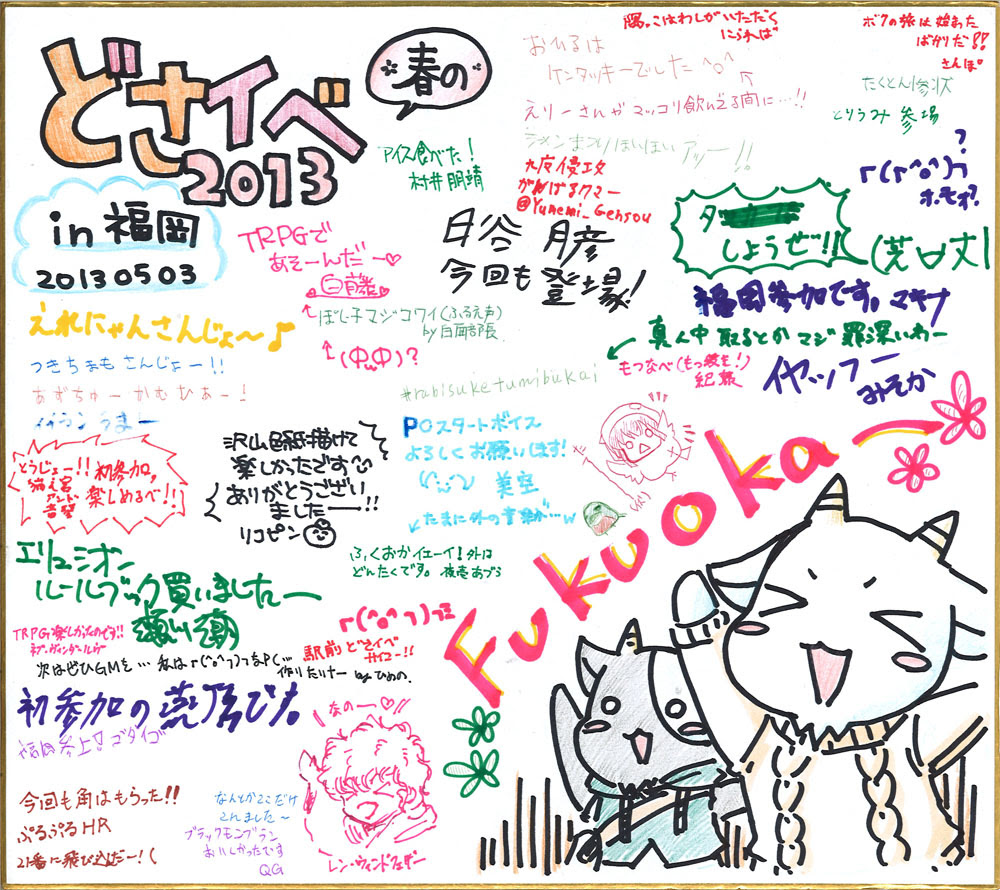 どさイベ
2013
春の
in 福岡
20130503
アイス食べた!
村井朋靖
おひるは
ケンタッキーでした^o^
えりーさんがマッコリ飲んでる間に…!!
ボクの旅は始まった
ばかりだ!!
さんぽ
たくとん惨状
とりうみ 参場
九度侵攻
がんばるクマー
@Yumemi_Gensou
日谷 月彦
今回も登場!
?
r(r^o^)
ホモォ?
タ
しようぜ!!
(芝口丈)
福岡参加です。マキナ
真ん中取るとかマジ罪深いわー
もつなべ(もっ鍋を!)
イヤッフー
みそか
TRPGで
あそーんだー♡
白藤
ぼし子マジコワイ(ふるえ声)
by白面部長
(ΦωΦ)?
#rabisuketumibukai
えれにゃんさんじょ~♪
つきちまもさんじょー!!
あずちゅーかむひあー!
とうじょー!!初参加。
楽しめるべ!!
沢山色紙描けて
楽しかったです
ありがとうござい
ましたー!!
リコピン
POスタートボイス
よろしくお願いします!
美空
たまに外の音楽が…w
ふくおかイエーイ!外は
どんたくです。
エリュシオン
ルールブック買いましたー
瀬川潮
TRPG楽しかったのぜ!!
次はぜひGMを…私はr(^o^ㄱ)っなPC…
作りたいナー byひめの.
r(^o^ㄱ)っ三
駅前どさイベ
サイコー!!
初参加の燕乃です。
福岡参上!ゴダイゴ
なのー♡!
レン・ウィンドフェザー
今回も角はもらった!!
ぷるぷるHR
21番に飛び込だー!(
なんとかここだけ
これました~
ブラックモンブラン
おいしかったです
QG
Fukuoka